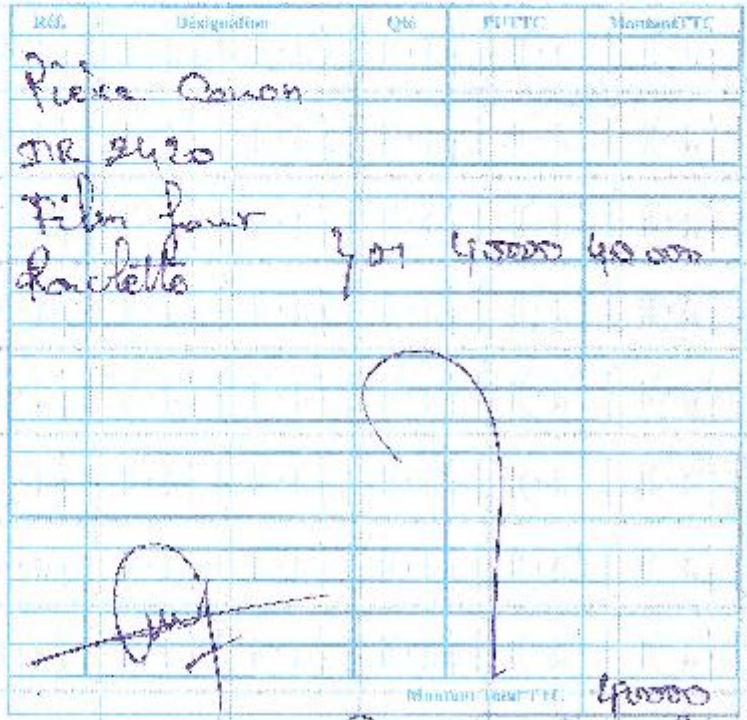 Réf. Désignation Qté PUTTC Montant TTC
Pièce Canon
IR 2420
Film four
Roulette 01 40000 40 000
Montant Total TTC 40000